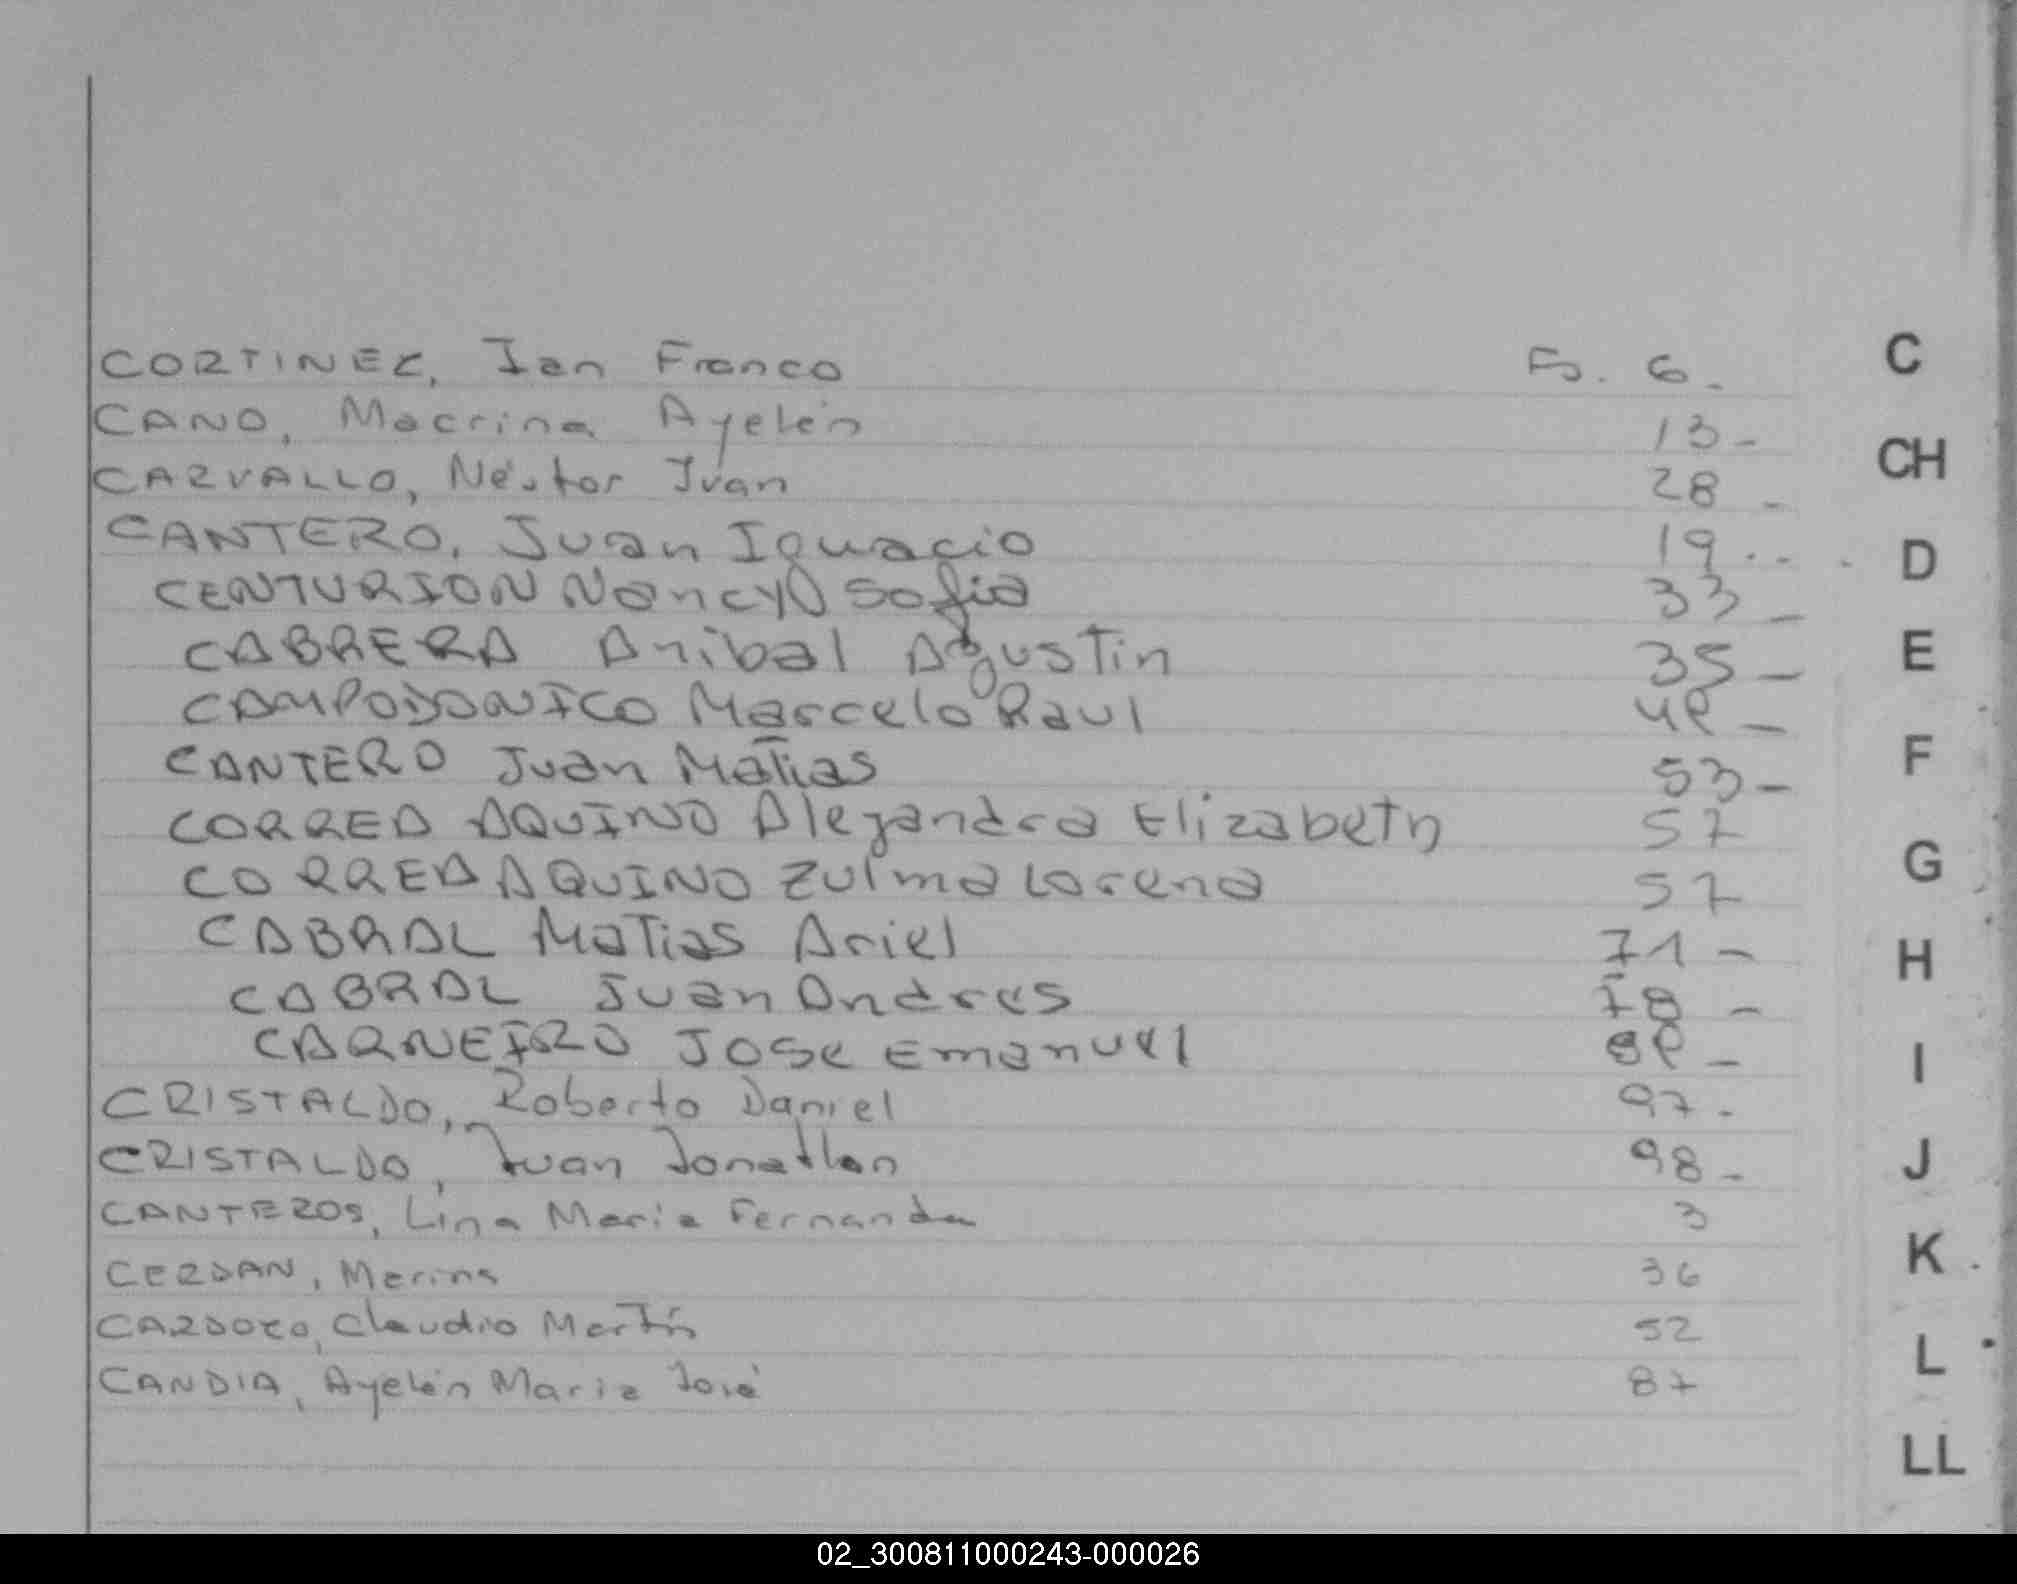 CORTINEZ, Ian Franco Fs. 6.
CANO, Macrina Ayelén 13-
CARVALLO, Néstor Iván 28 -
CANTERO, Juan Ignacio 19..
CENTURION Nancy Sofia 33 -
CABRERA Anibal Agustin 35 -
CAMPODONICO Marcelo Raul 49 -
CANTERO Juan Matias 53 -
CORREA AQUINO Alejandra Elizabeth 57
CORREA AQUINO Zulma Lorena 57
CABRAL Matias Ariel 71 -
CABRAL Juan Andres 78 -
CARNEIRO Jose Emanuel -
CRISTALDO, Roberto Daniel 97.
CRISTALDO, Juan Jonathan 98-
CANTEROS, Lina Maria Fernanda 3
CERDAN, Marina 36
CARDOZO, Claudio Martín 52
CANDIA, Ayelén Maria José 87
C
CH
D
E
F
G
H
I
J
K
L
LL
02_300811000243-000026